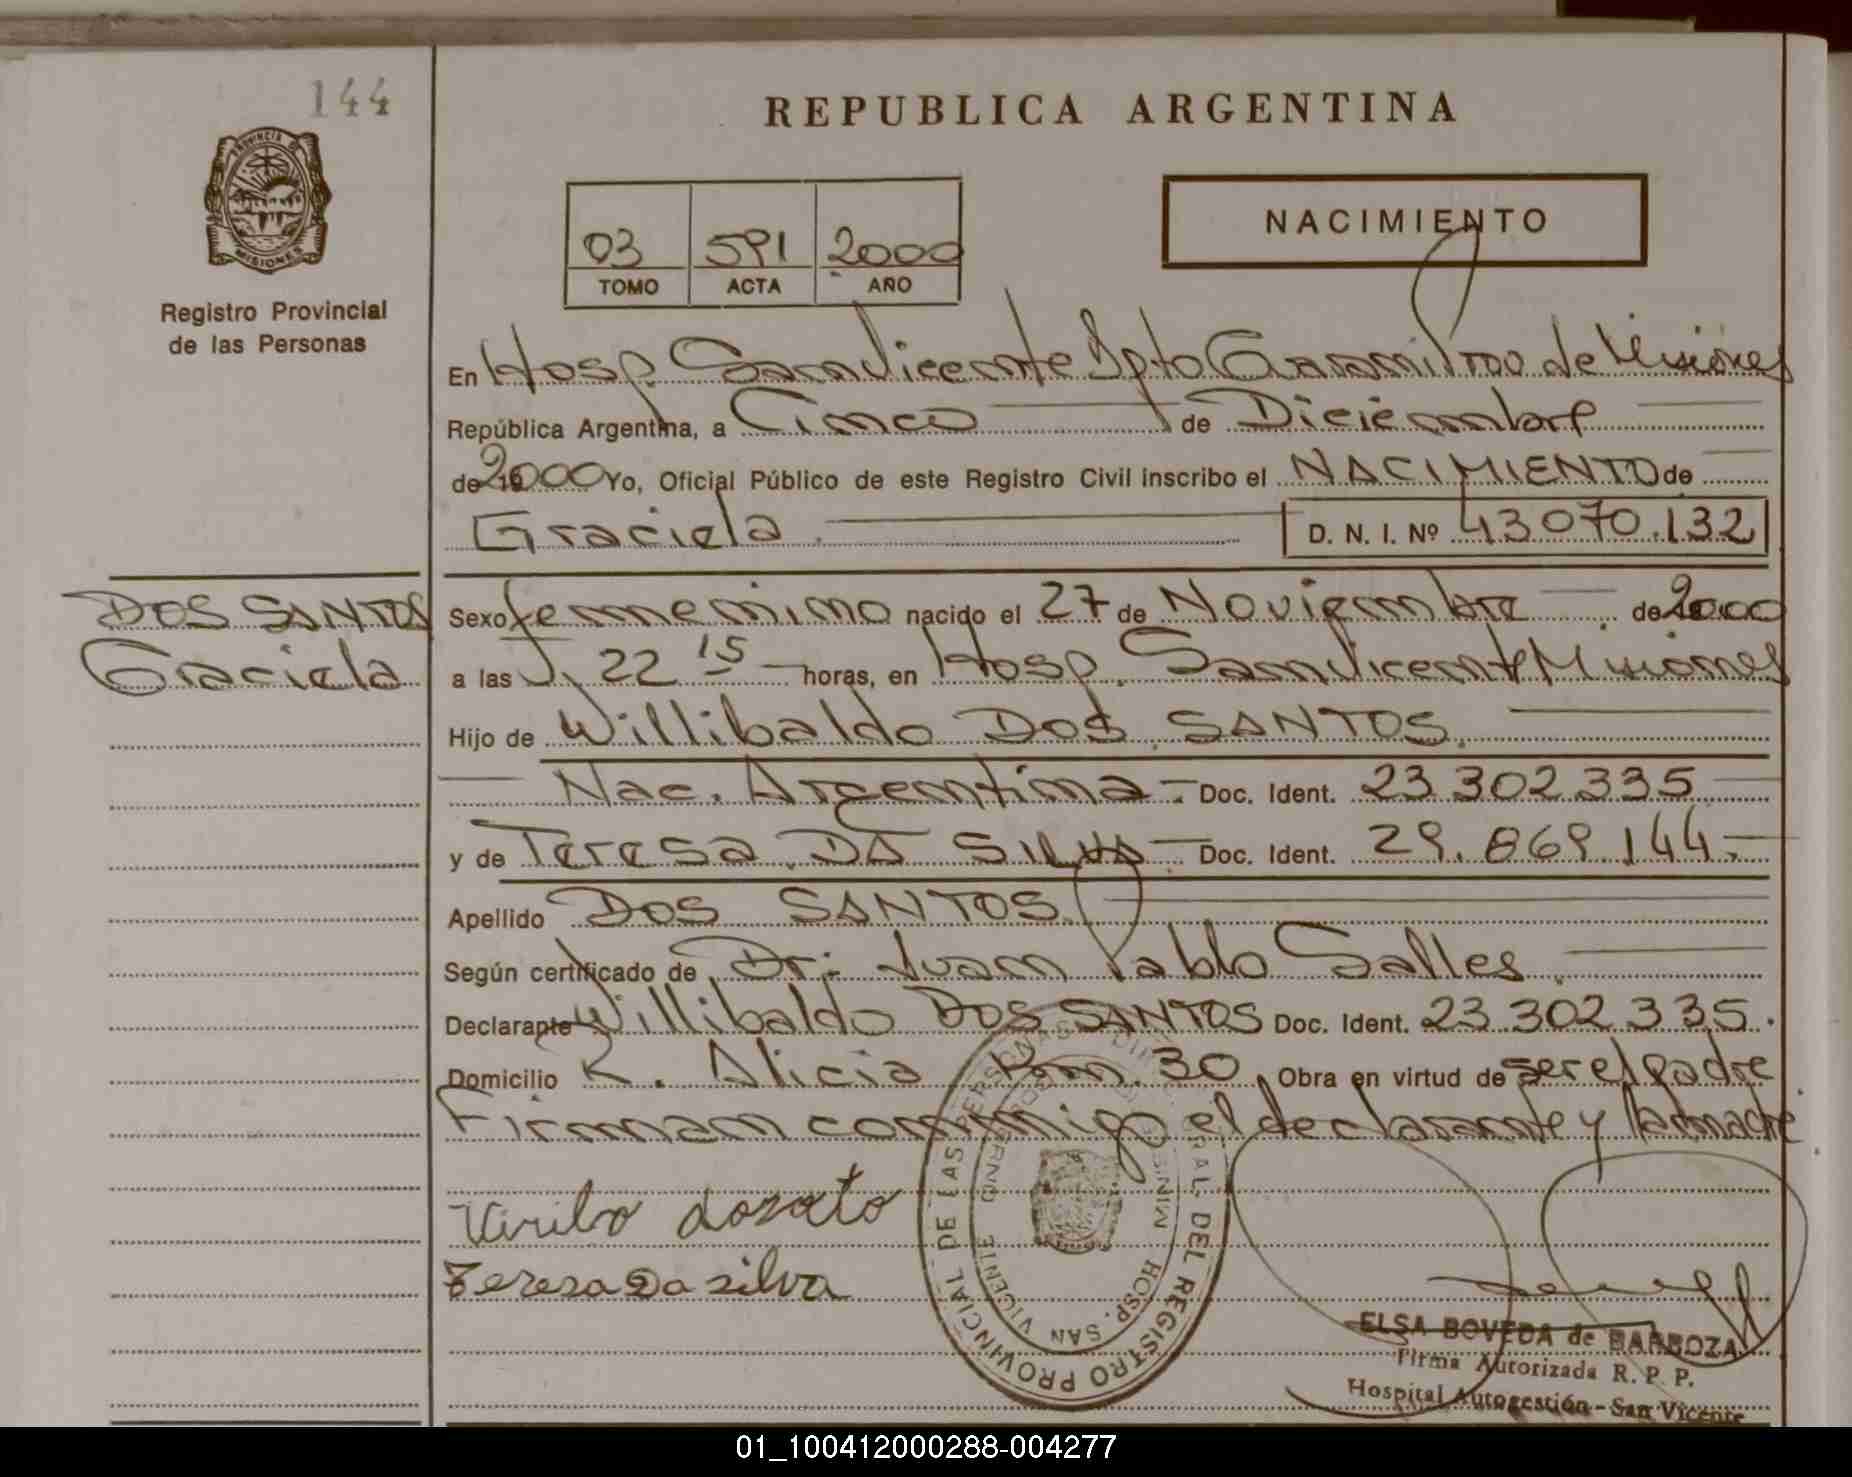 144
REPUBLICA ARGENTINA
PROVINCIA DE
MISIONES
Registro Provincial
de las Personas
NACIMIENTO
03 591 2000
TOMO ACTA AÑO
En Hosp. San Vicente Dpto Guaraní Prov de Misiones
República Argentina, a Cinco de Diciembre
de 2000 Yo, Oficial Público de este Registro Civil inscribo el NACIMIENTO de
Graciela D. N. I. Nº 43.070.132
DOS SANTOS
Graciela
Sexo femenino nacido el 27 de Noviembre de 2000
a las 22 15 horas, en Hosp. San Vicente Misiones
Hijo de Willibaldo DOS SANTOS.
Nac. Argentina - Doc. Ident. 23.302.335
y de Teresa DA SILVA - Doc. Ident. 29.869.144-
Apellido DOS SANTOS
Según certificado de Dr: Juan Pablo Salles
Declarante Willibaldo DOS SANTOS Doc. Ident. 23.302.335.
Domicilio K. Alicia Km. 30 Obra en virtud de ser el padre
Firman conmigo el declarante y la madre
Teresa Da silva
DEL REGISTRO PROVINCIAL DE LAS PERSONAS
HOSP. SAN VICENTE
ELSA BOVEDA de BARBOZA
Firma Autorizada R. P. P.
Hospital Autogestión - San Vicente
01_100412000288-004277